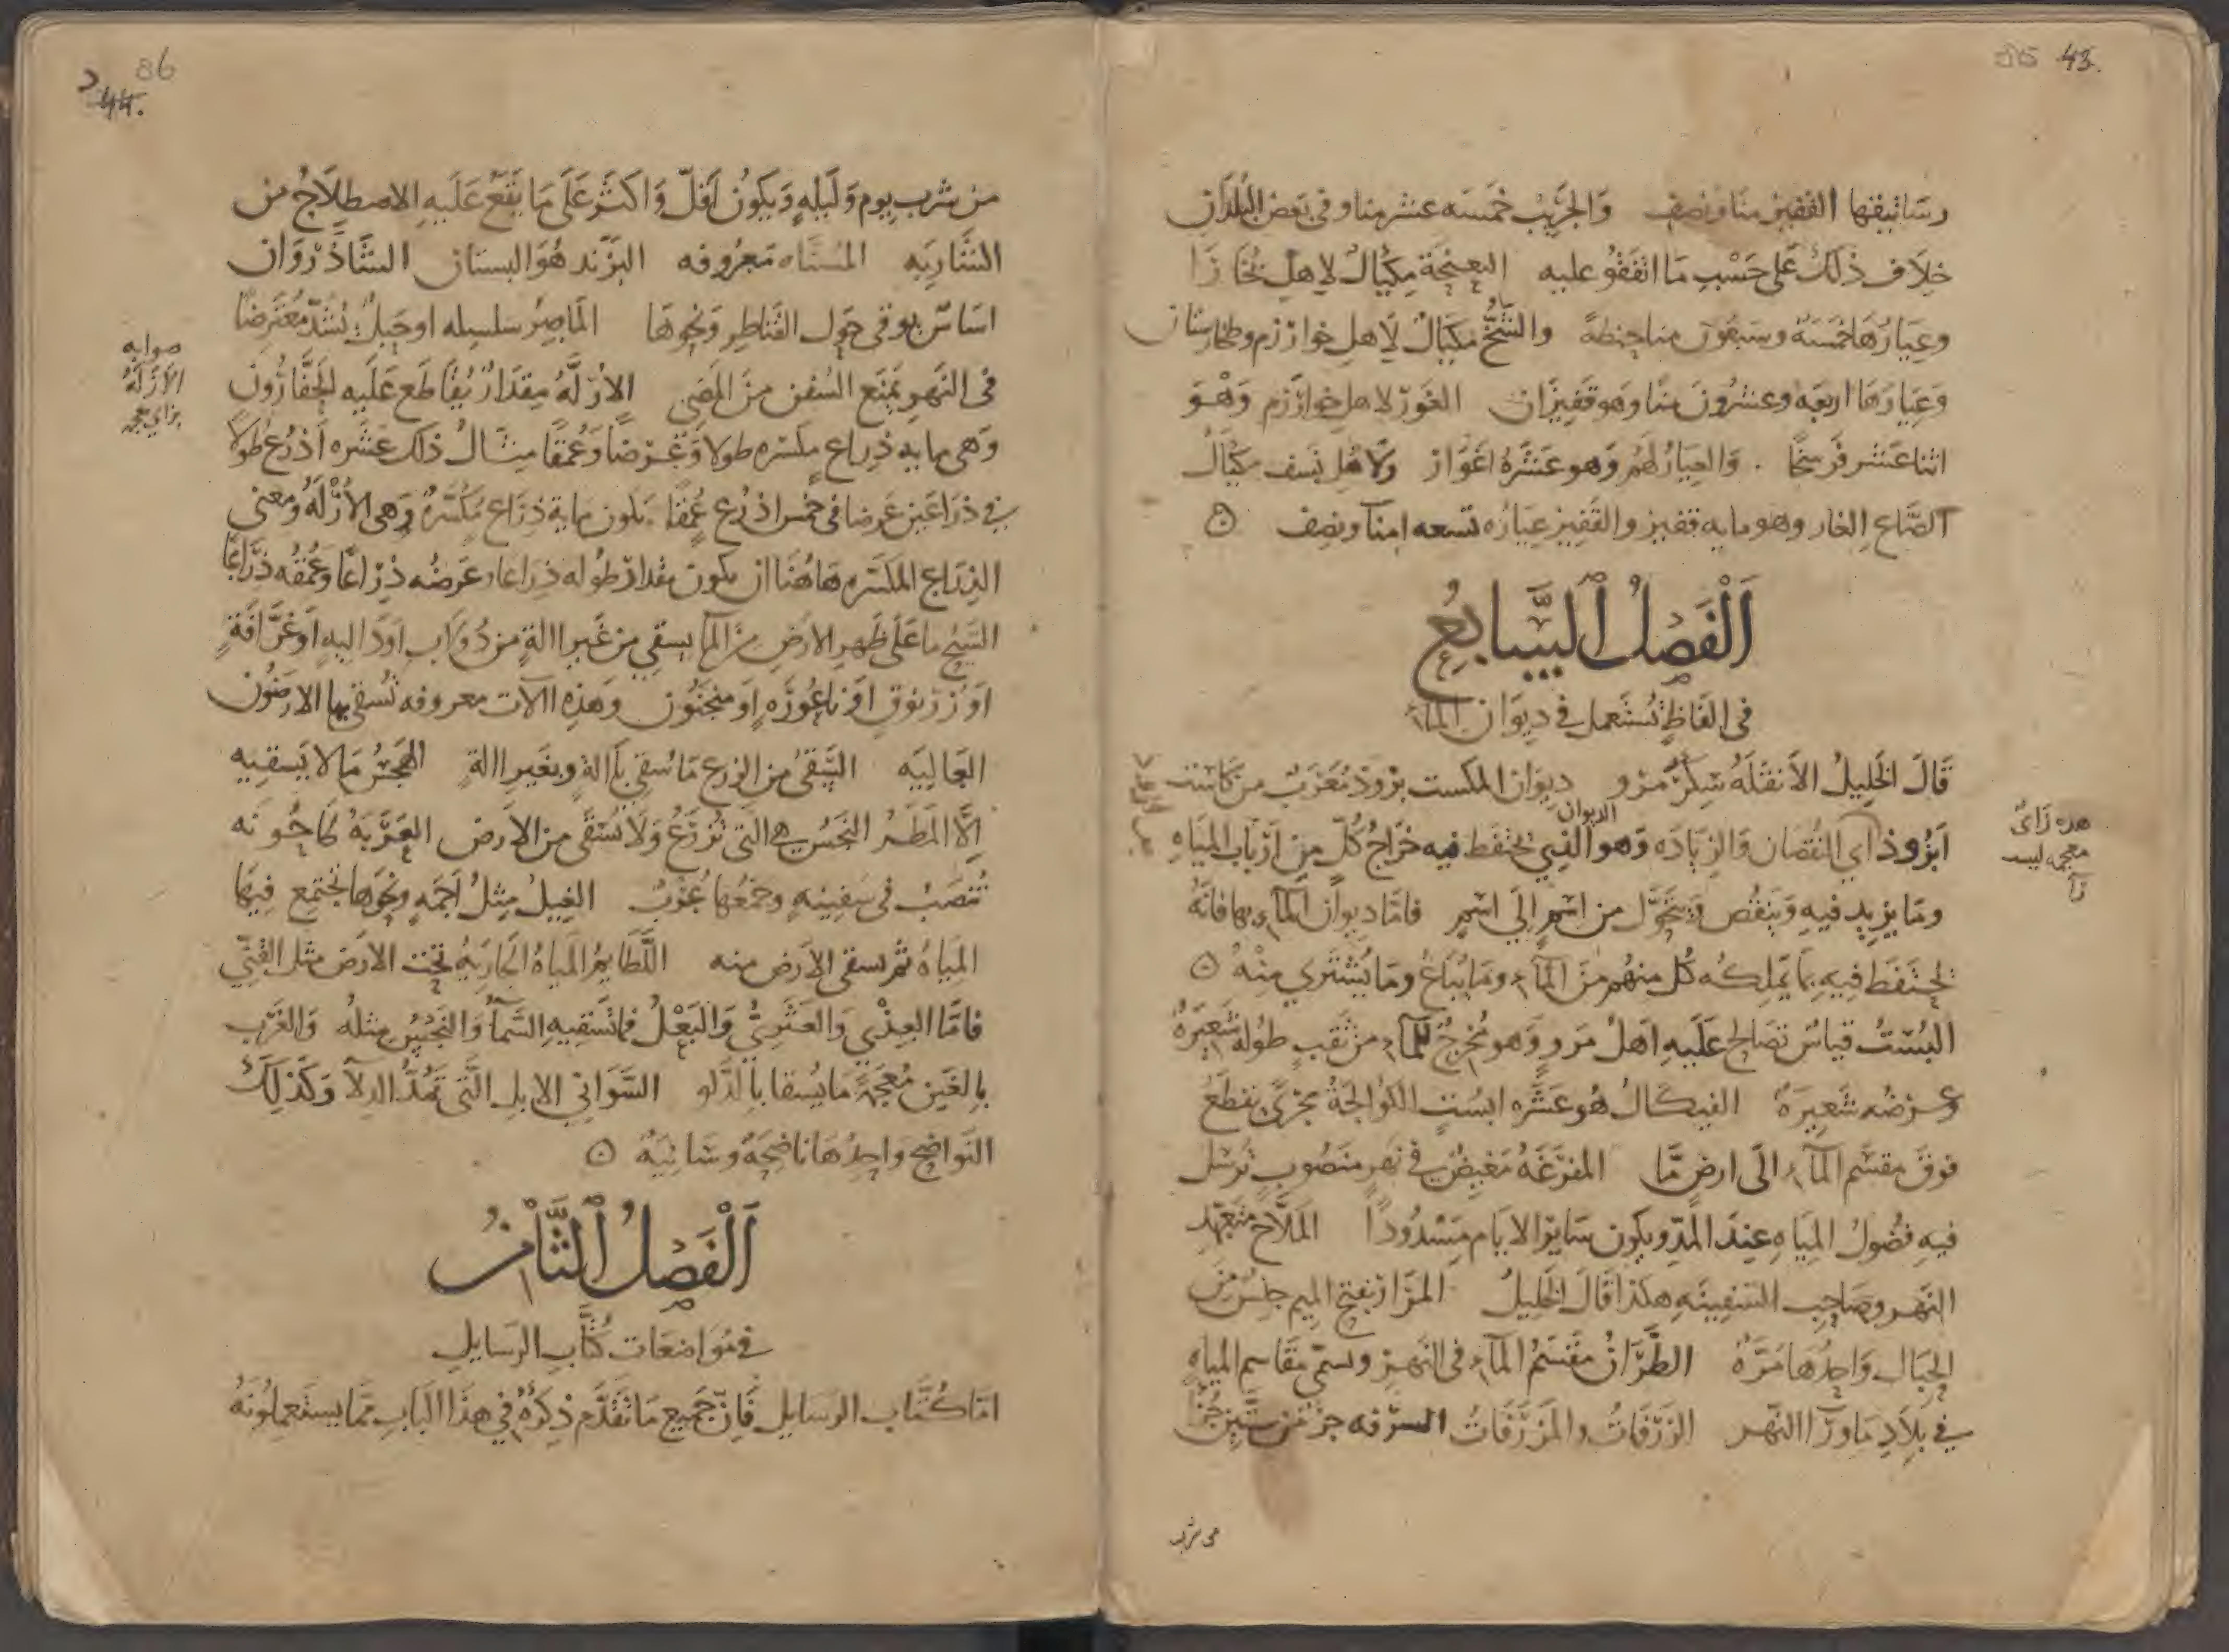 85 43.
رساتيقها القفيز منا ونصف والجَرِيْبُ خَمسَه عشر منا وفى بَعض البُلدَانِ
خِلَاف ذلكَ عَلى حَسْبِ مَا اتفَقُو عليه الغنجَةُ مِكيَالٌ لِاهلِ بُخَارَا
وعِيَارُهَا خَمسَةٌ وسَبعُونَ منا حِنطهً والسُّخُّ مكيَالٌ لِاَهلِ خوارزم وطخارستان
وَعِيَارُهَا اربعَه وعشرُونَ منًا وهو قَفِيزَان الغَورُ لاهلِ خوارَزم وَهْوَ
اثنا عَشر فَرسَخًا . والعيارُ لهُم وَهو عَشرَهُ اغوَارٍ ولاهْلِ نسف مكيَالُ
الصَّاعِ الغار وهو مايه قفيز والقَفِيز عيَارُه تسعه امنَآ ونصف ۞
اَلْفَصلُ السَّابعُ
فى الفَاظٍ تُستَعمل فى دِيوَان المَآءِ
قَالَ الخَلِيلُ الاَنقَلَهُ سِكْرُ مَرْو دِيوَان الكست بزود مُعَرَبٌ من كاست
الديوان
اَبزُوذ اي النُقصَان وَالزيَادَه وَهو الذي يُحتفَظ فيه خَرَاجُ كُلّ مِن اَربَاب المِيَاهِ
هده زَائٌ
معجمه ليست
رآ
ومَا يزيد فيهِ وَينقُص وَيتَحَوَّل من اسمٍ الَي اسْمٍ فامَّا ديوَان المآءِ بها فانَّهُ
يُحتَفَظ فِيهِ بِمَا يَملِكُه كُل منهُم مِنَ المَآءِ وَمَا يُبَاعُ ومَا يُشتَرَي مِنْهُ ۞
البُسْتُ قيَاسٌ تصَالح عَلَيهِ اَهلُ مَروٍ وَهو مُخرجٌ للمآءِ من ثقبٍ طُولهُ شَعيرَهٌ
وعرضُه شَعيرَهٌ الفنكَالُ هُو عَشَره ابسُتٍ الكوَالجَةُ مجرًى يقطَعُ
فوقَ مقسَم المآءِ الَى ارضٍ مَّا المفرَغَهُ مَغيضٌ فى نهَرٍ منصُوبٍ تُرسَل
فيهِ فضُولُ المِيَاهِ عِندَ المَدّ ويكُون سَايرَ الايَام مَسْدُودًا المَلَّاح مُتعَهّد
النَهر وصَاحِب السَفينَهِ هكذا قَالَ الخَلِيلُ المَرَار بفتح المِيم جنسٌ مِنَ
الحِبَال وَاحدُها مَرَّهٌ الطَّرَازُ مقسَمُ المآءِ فى النَهر وتسمَّى مقَاسم المِيَاهِ
فى بِلَادِ مَا ورَآ النَهر الدَّرقَاتُ والمزرَّقَاتُ السرفه جزءٌ من سِتّين جُزءً
من شرب
86
د 44.
من شربِ يوم وَليلهٍ وَيكُونُ اَقلَّ وَاكثَر عَلَى مَا يَقَعُ عَلَيهِ الاصطِلَاحُ من
الشَارِبَه المُسَنَّاه مَعرُوفه البَزَند هُوَ البستان الشَّاذْرْوَان
اسَاسٌ يوقى حَول القنَاطِر وَنحوِهَا المَاصِرُ سلسِله او حَبلٌ يُشَدُّ مُعتَرِضًا
فى النَهر يَمنَع السُفن منَ المضِي الارْلَّهُ مِقدَارٌ يُقَاطَع عَلَيهِ الحَفَّارُونَ
صوابه
الاَزلَّهُ
بزاى معجمه
وَهى مايه ذِرَاعٍ مكسَره طولا وَعَرضًا وَعُمقًا مِثَالُ ذلك عَشره اَذرُعٍ طُولًا
فى ذرَاعَين عَرضا فى خمس اذرُع عُمقًا يكون مايه ذِرَاع مُكسَّرهٌ وهى الاُزْلَّهُ ومعنى
الذِرَاع المكسّره هَاهُنَا ان يكون مقدار طُوله ذِرَاعا وَعَرضُه ذِرَاعًا وعُمقُه ذِرَاعًا
السَيْحُ ما عَلَى ظَهر الارضِ منَ المآءِ يسقي من غَير الةٍ من دُولَابٍ اَو دَاليهٍ اَو غَرَّافَةٍ
اَو زرنوق اَو ناعُورَهٍ اَو منجَنُون وَهَذِه الآلات معروفه تُسقى بها الارضُون
العَاليَه السَّقيُ من الزرع مَا سُقي بآلةٍ وبغَير الةٍ الهَجسُ مَا لا يَسقِيه
اِلَّا المَطر البَخسُ هى التَى تُزرَعُ وَلَا تُسقَى من الاَرض العَرَبَهُ طَاحُونَه
تُنصَبُ فى سَفِينهٍ وجَمعُها عُرَبٌ الغِيلُ مِثلُ اَجَمَهٍ وَنحوِها تجتَمِع فِيهَا
المِيَاهُ ثم تُسقى الاَرض منه الكَظَايمُ المياهُ الجَاريَةُ تحت الارَض مثل القُنيِّ
فامَّا العِذْي والعَثَرِيُّ وَالبَعْلُ فما تَسقيهِ السَّمآءُ والبَخسُ مِثلُه وَالغَرْب
بالغَين مُعجَمَةً مَا يُسقا بالدَّلو السَّوَانِي الابل التَى تَمُدُّ الدِلآ وَكَذلِكَ
النَوَاضح وَاحِدُهَا نَاضِحَهٌ وسَانِيَهٌ ۞
اَلْفَصلُ الثَّامنُ
فى مُوَاضعَات كُتَّاب الرسَايلِ
امّا كُتَّاب الرسَايل فَاِنَّ جَمِيع مَا تقدَّم ذِكرُهُ فى هذَا البَاب مِمَّا يستَعمِلُونَهُ